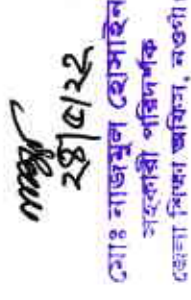 ২৪/৫/২২
মোঃ নাজমুল হোসাইন
সহকারী পরিদর্শক
জেলা শিক্ষা অফিস, নওগাঁ।